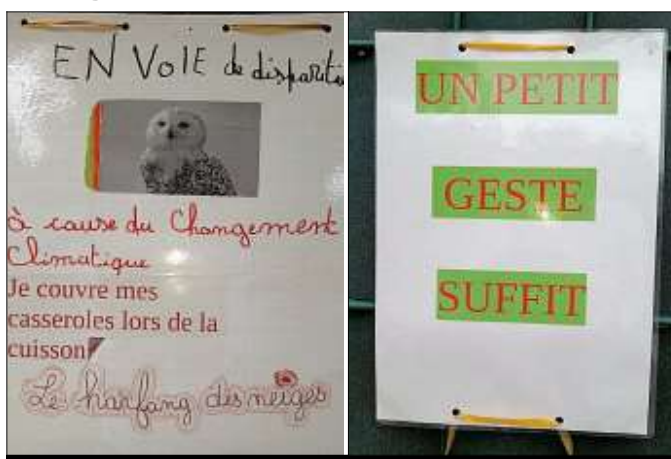 EN VOIE de disparitio
à cause du Changement
Climatique
Je couvre mes
casseroles lors de la
cuisson
Le harfang des neiges
UN PETIT
GESTE
SUFFIT